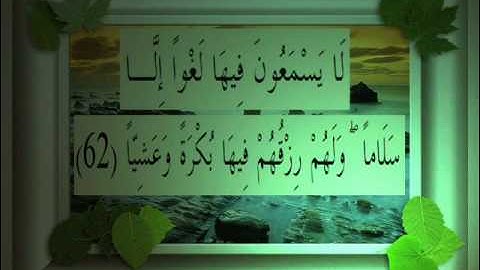 لَا يَسْمَعُونَ فِيهَا لَغْواً إِلَّـــا
سَلَاماً ۖ وَلَهُمْ رِزْقُهُمْ فِيهَا بُكْرَةً وَعَشِيّاً (62)